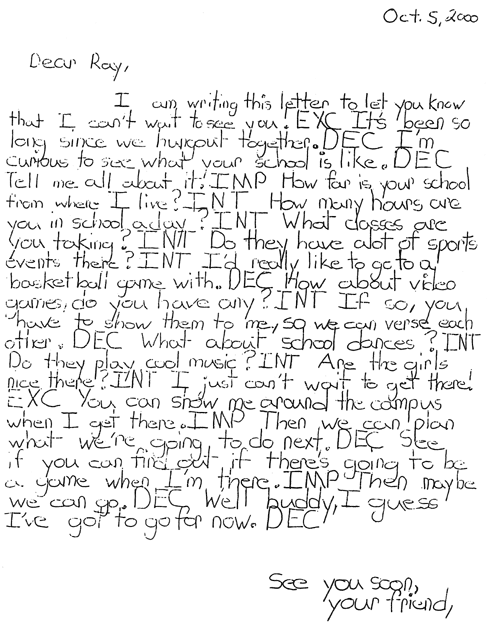 Oct. 5, 2000
Dear Ray,
I am writing this letter to let you know
that I can't wait to see you! EXC It's been so
long since we hungout together. DEC I'm
curious to see what your school is like. DEC
Tell me all about it! IMP How far is your school
from where I live? INT How many hours are
you in school a day? INT What classes are
you taking? INT Do they have alot of sports
events there? INT I'd really like to go to a
basketball game with. DEC How about video
games, do you have any? INT If so, you
have to show them to me, so we can verse each
other. DEC What about school dances? INT
Do they play cool music? INT Are the girls
nice there? INT I just can't wait to get there!
EXC You can show me around the campus
when I get there. IMP Then we can plan
what we're going to do next. DEC See
if you can find out if there's going to be
a game when I'm there. IMP Then maybe
we can go. DEC Well buddy, I guess
I've got to go for now. DEC
See you soon,
your friend,